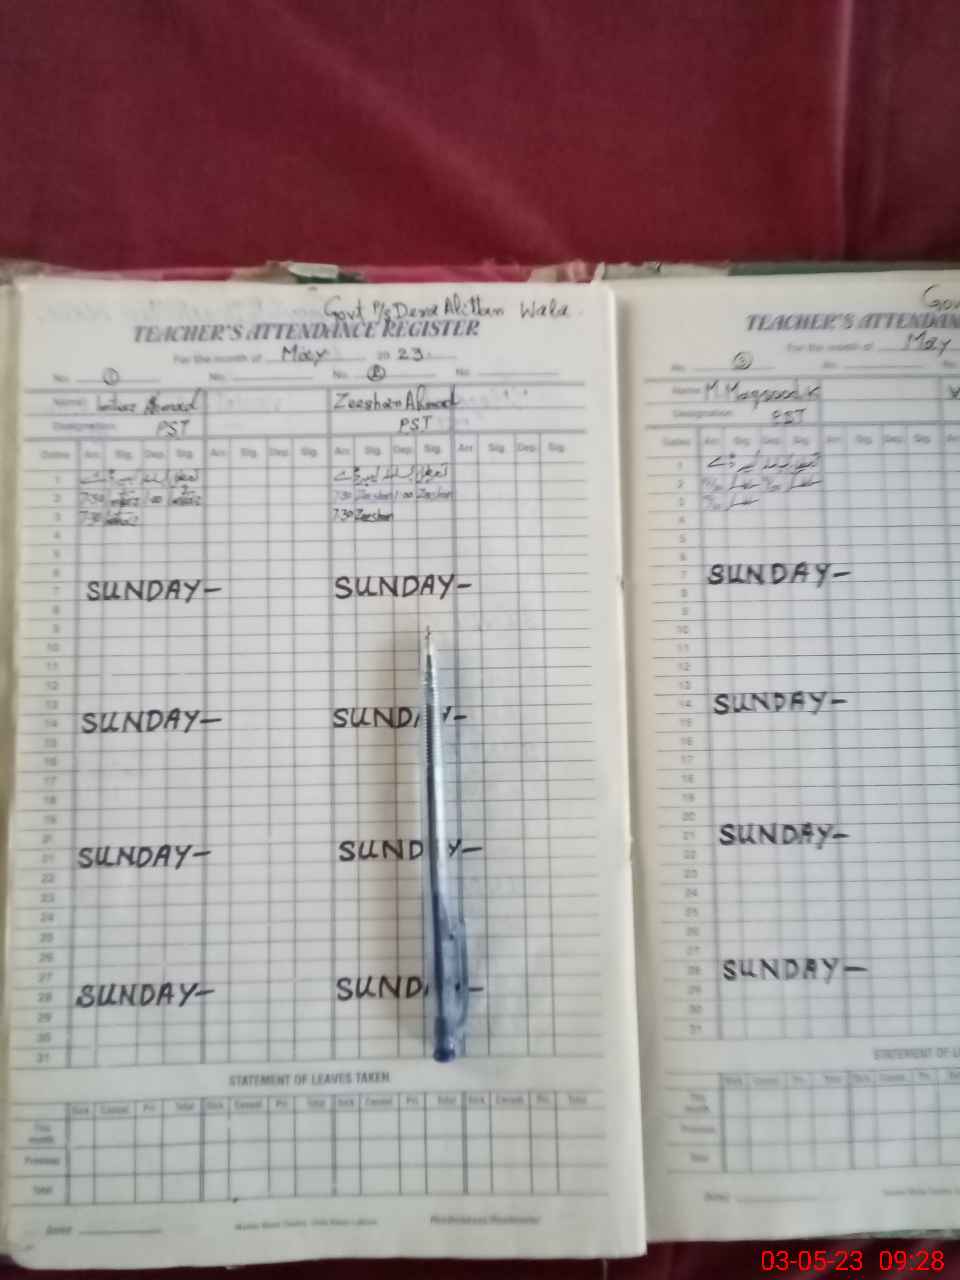 Govt P/s Dera Alittan Wala.
TEACHER'S ATTENDANCE REGISTER
For the month of May 20 23
No. 1 No. No. 2 No.
Name Ahmad Zeeshan Ahmad
Designation PST PST
Dates Arr. Sig. Dep. Sig. Arr. Sig. Dep. Sig. Arr. Sig. Dep. Sig. Arr. Sig. Dep. Sig.
1
2 7:30 1:00 7:30 Zeeshan 1:00 Zeeshan
3 7:30 7:30 Zeeshan
4
5
6
7 SUNDAY- SUNDAY-
8
9
10
11
12
13
14 SUNDAY- SUNDA Y-
15
16
17
18
19
20
21 SUNDAY- SUND Y-
22
23
24
25
26
27
28 SUNDAY- SUND -
29
30
31
STATEMENT OF LEAVES TAKEN
Sick Casual Pri. Total Sick Casual Pri. Total Sick Casual Pri. Total Sick Casual Pri. Total
This month
Previous
Total
Date Headmistress/Headmaster
Gov
TEACHER'S ATTENDAN
For the month of May
No. 3 No.
Name M. Maqsood
Designation PST
Dates Arr. Sig. Dep. Sig. Arr. Sig. Dep. Sig. Arr.
1
2
3
4
5
6
7 SUNDAY-
8
9
10
11
12
13
14 SUNDAY-
15
16
17
18
19
20
21 SUNDAY-
22
23
24
25
26
27
28 SUNDAY-
29
30
31
STATEMENT OF L
Sick Casual Pri. Total Sick Casual Pri. Total
This month
Previous
Total
Date
03-05-23 09:28